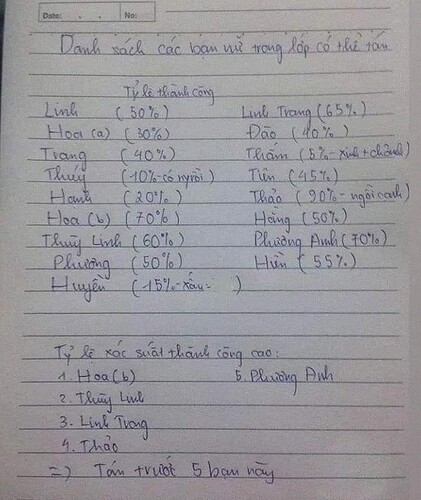 Date: . . No:
Danh xách các bạn nữ trong lớp có thể tán
Tỷ lệ thành công
Linh (50%) Linh Trang (65%)
Hoa (a) (30%) Đào (40%)
Trang (40%) Thắm (5%-xinh+chảnh)
Thúy (-10%-có ny rồi) Tiên (45%)
Hạnh (20%) Thảo (90%-ngồi cạnh)
Hoa (b) (70%) Hằng (50%)
Thùy Linh (60%) Phương Anh (70%)
Phương (50%) Hiền (55%)
Huyền (15%-xấu= )
Tỷ lệ xác suất thành công cao:
1. Hoa (b) 5. Phương Anh
2. Thùy Linh
3. Linh Trang
4. Thảo
=) Tán trước 5 bạn này